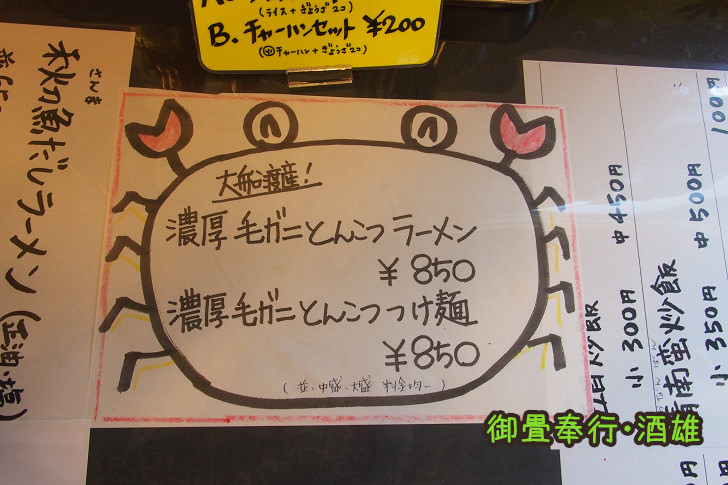 (ライス+ぎょうざ2コ)
B. チャーハンセット ¥200
(小チャーハン+ぎょうざ2コ)
さんま
秋刀魚だしラーメン (正油・塩)
大船渡産!
濃厚毛ガニとんこつラーメン
¥850
濃厚毛ガニとんこつつけ麺
¥850
(並、中盛、大盛 料金均一)
100円
炒飯
小 300円 中 450円
なんばん
南蛮炒飯
小 350円 中 500円
御畳奉行・酒雄